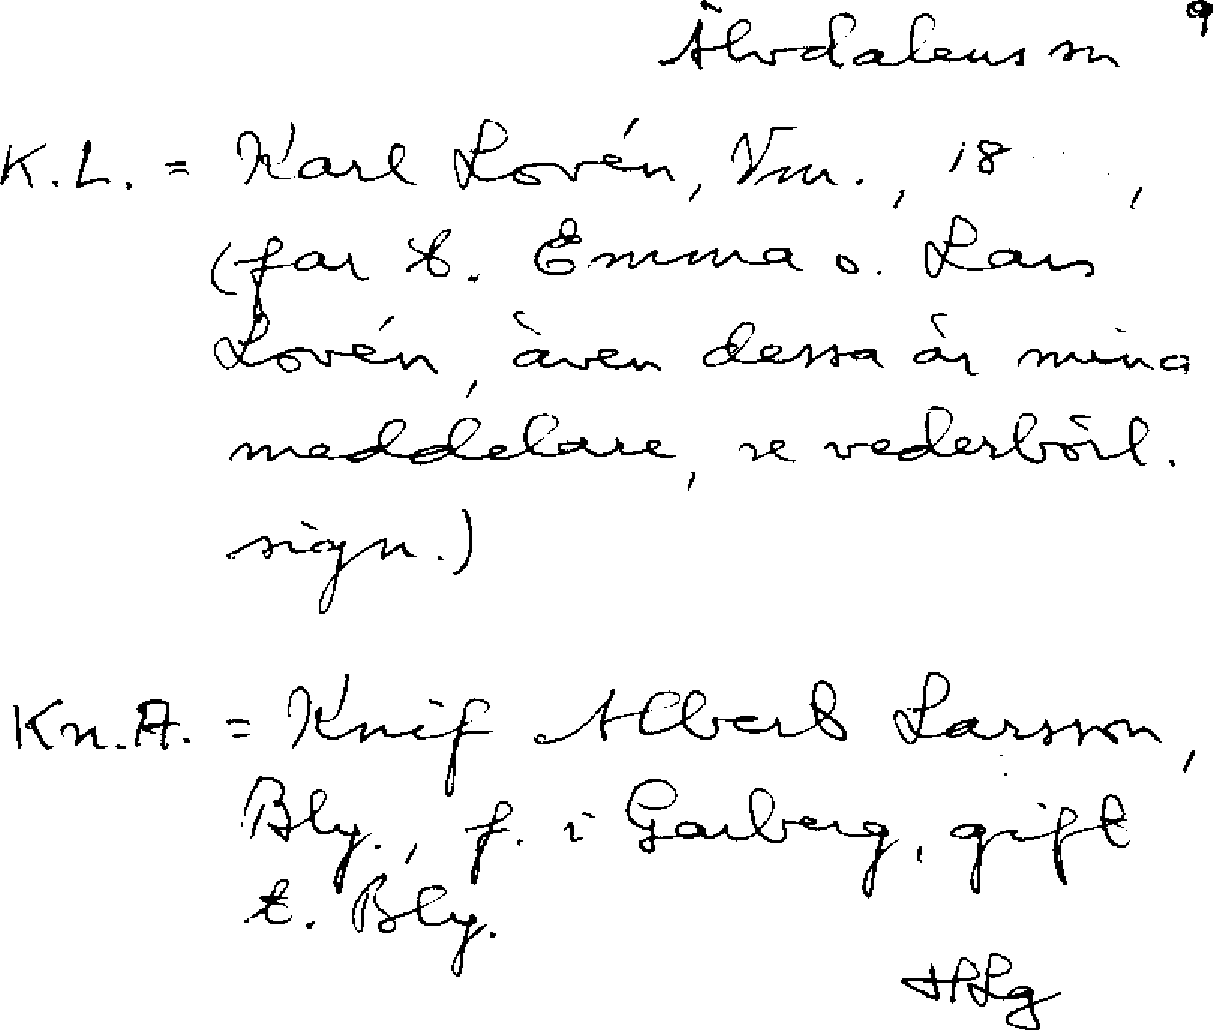 Älvdalens sn 9
K.L. = Karl Lovén, Vm., 18 ,
(far t. Emma o. Lars
Lovén, även dessa är mina
meddelare, se vederbörl.
sign.)
Kn.A. = Knif Albert Larsson,
Bly., f. i Garberg, gift
t. Bly.
HLg